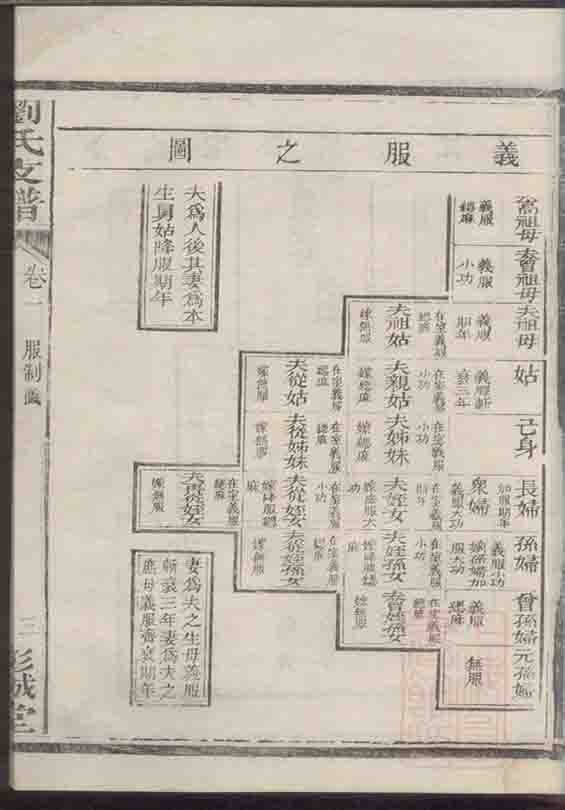 義服之圖
高祖母
義服
緦麻
夫曾祖母
義服
小功
夫祖母
義服
期年
姑
義服斬
衰三年
己身
長婦
加服期年
衆婦
義服大功
孫婦
義服小功
嫡孫婦加
服大功
曾孫婦
義服
緦麻
元孫婦
無服
在室義服
緦麻
夫祖姑
嫁無服
在室義服
小功
夫親姑
嫁緦麻
在室義服
小功
夫姊妹
嫁緦麻
在室義服
期年
夫姪女
嫁降服大
功
在室義服
小功
夫姪孫女
嫁降服緦
麻
在室義服
緦麻
夫曾姪孫女
嫁無服
在室義服
緦麻
夫從姑
嫁無服
在室義服
緦麻
夫從姊妹
嫁無服
在室義服
小功
夫從姪女
嫁降服緦
麻
在室義服
緦麻
夫從姪孫女
嫁無服
在室義服
緦麻
夫再從姪女
嫁無服
夫為人後其妻為本
生舅姑降服期年
妻為夫之生母義服
斬衰三年妻為夫之
庶母義服齊衰期年
劉氏支譜
卷一
服制圖
三
彭城堂